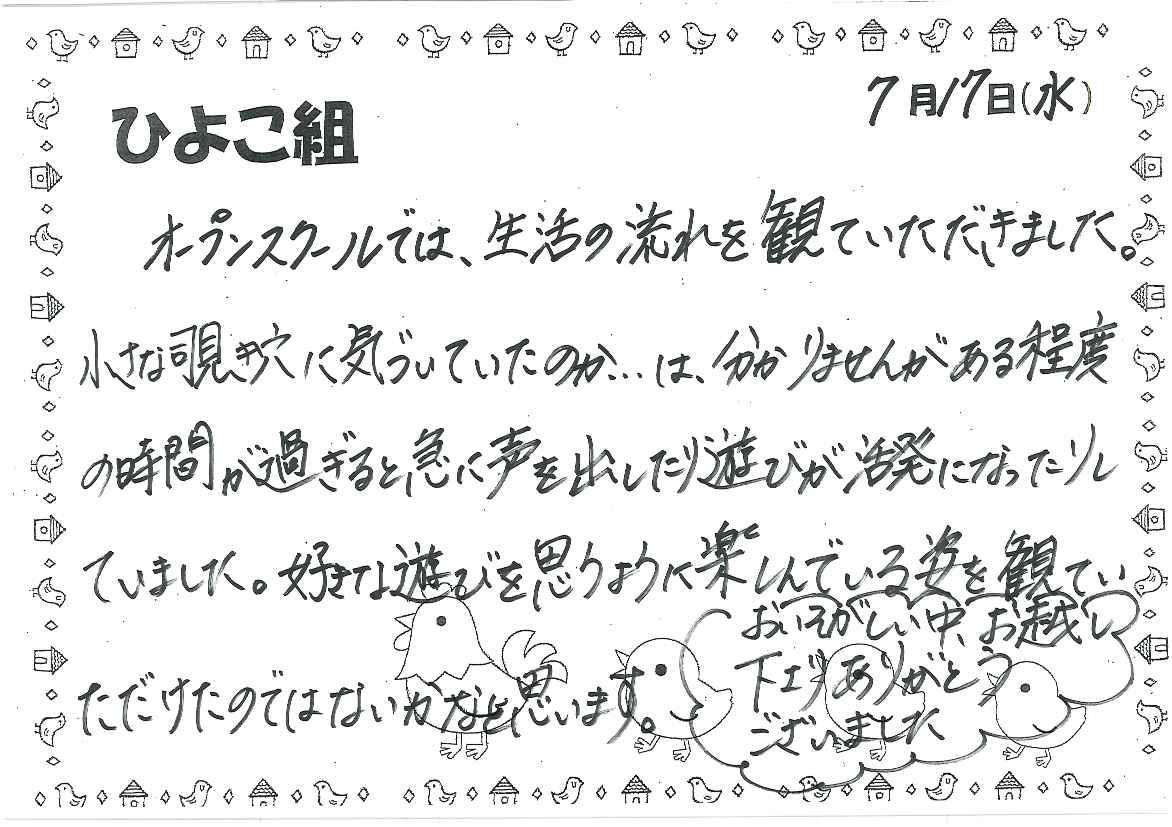 7月17日(水)
ひよこ組
オープンスクールでは、生活の流れを観ていただきました。
小さな覗き穴に気づいていたのか…は、分かりませんがある程度
の時間が過ぎると急に声を出したり遊びが活発になったりし
ていました。好きな遊びを思うように楽しんでいる姿を観てい
ただけたのではないかなと思います。
おいそがしい中、お越し
下さりありがとう
ございました